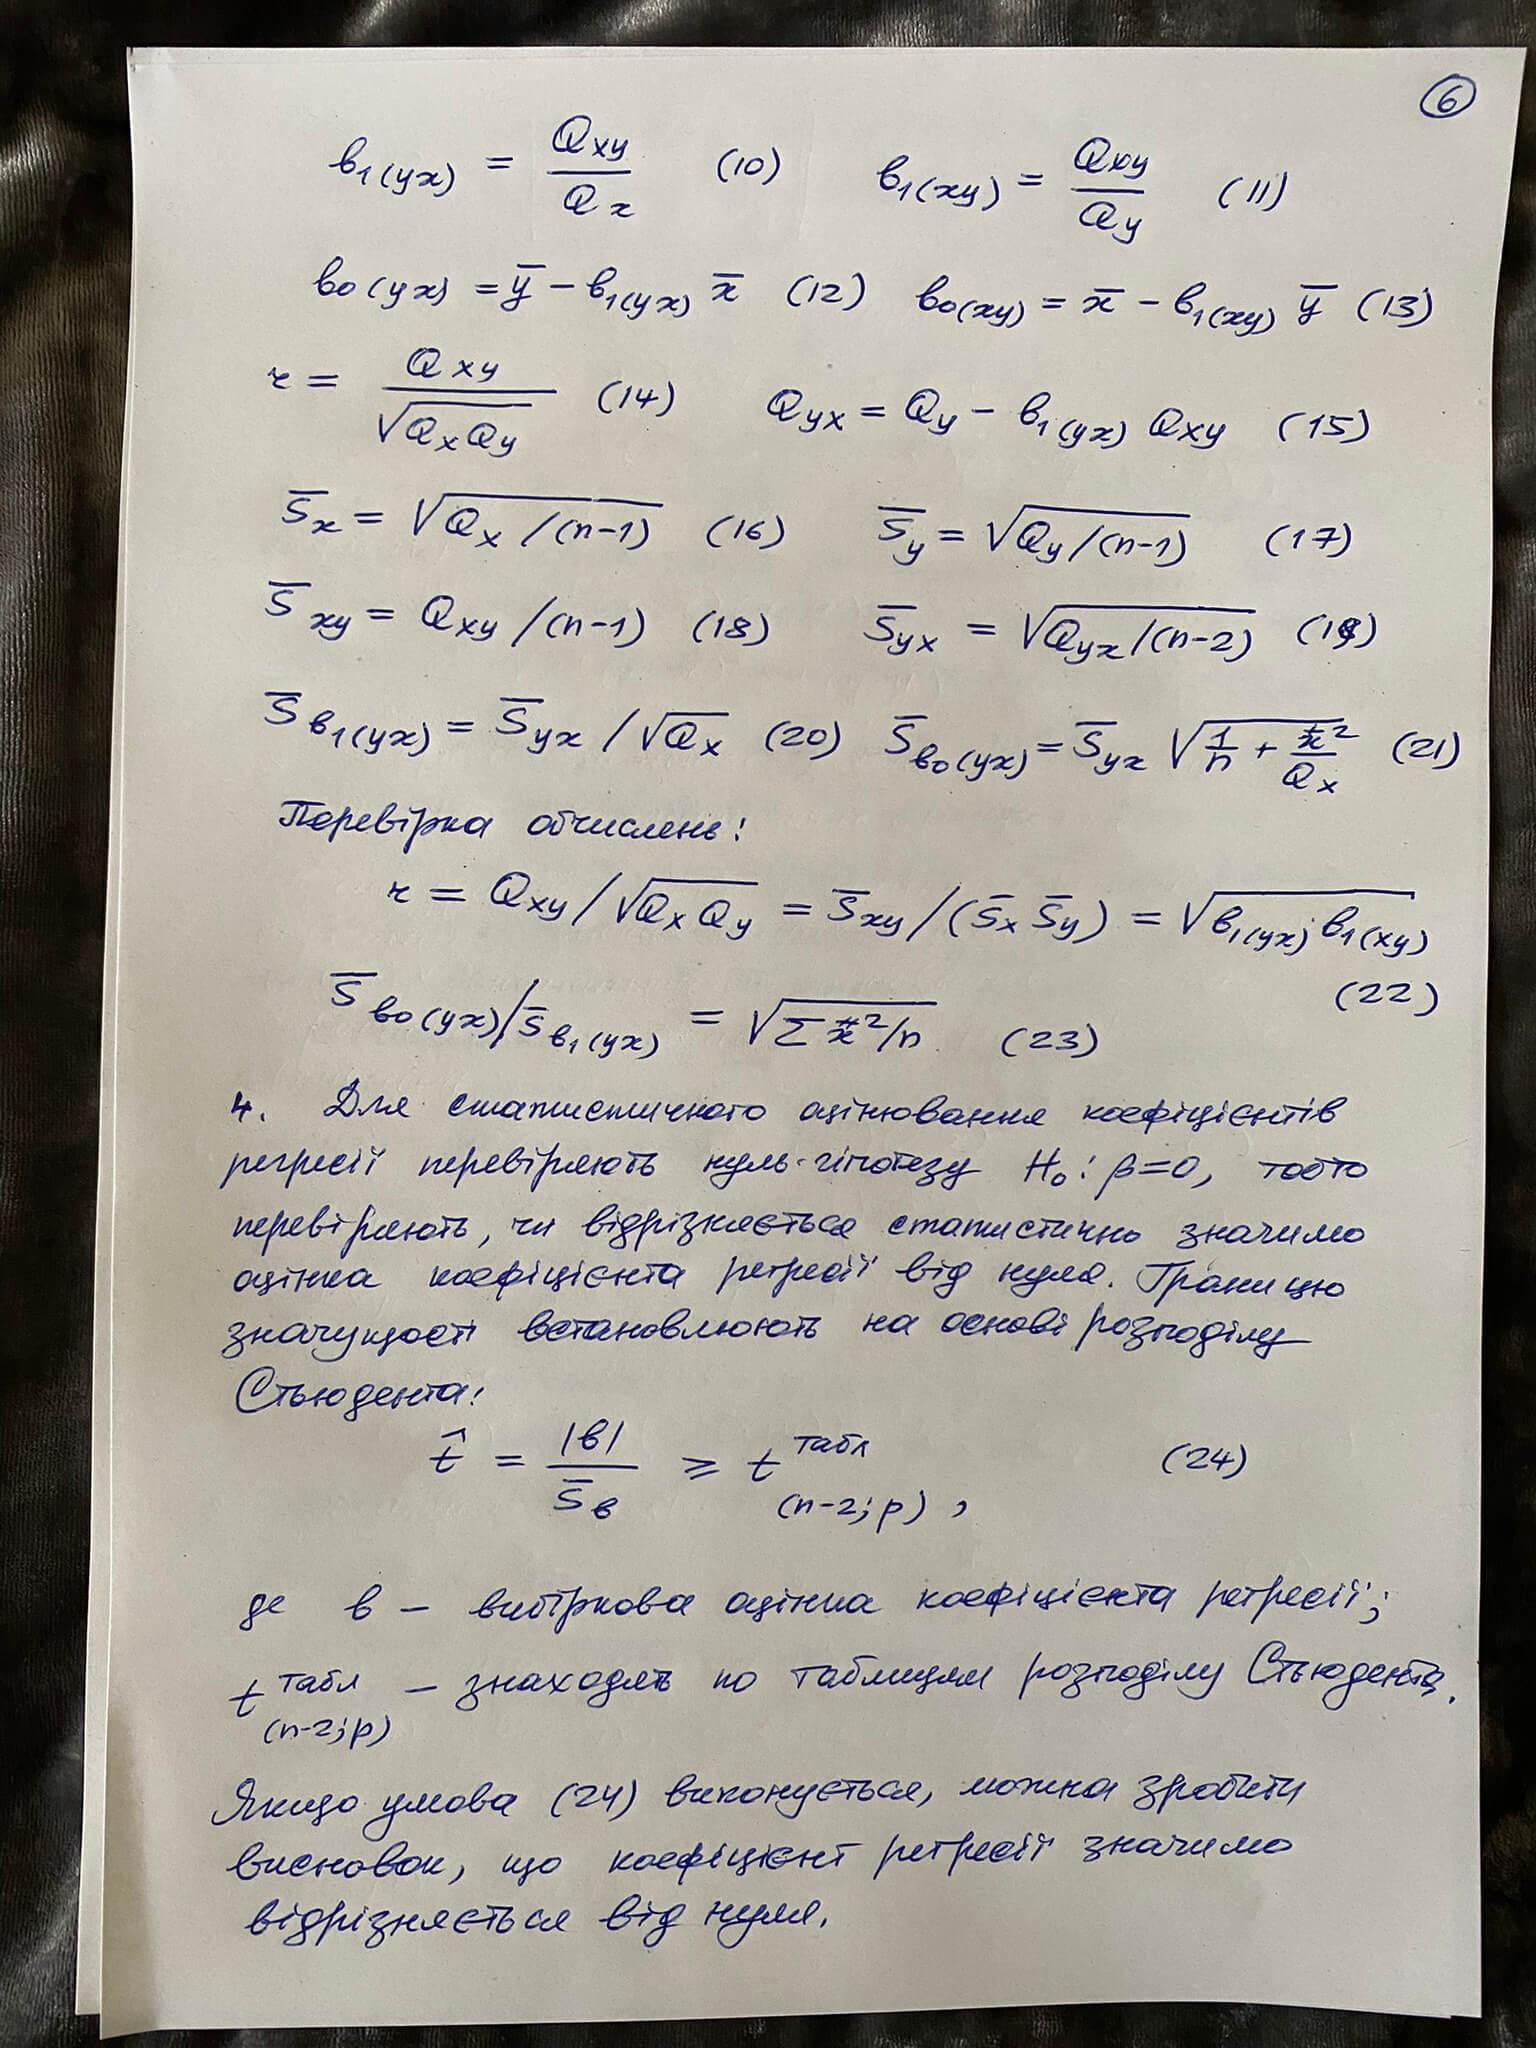 6
в₁(yx) = Qxy / Qx (10) в₁(xy) = Qxy / Qy (11)
в₀(yx) = y̅ − в₁(yx) x̅ (12) в₀(xy) = x̅ − в₁(xy) y̅ (13)
r = Qxy / √QxQy (14) Qyx = Qy − в₁(yx) Qxy (15)
S̅x = √Qx/(n−1) (16) S̅y = √Qy/(n−1) (17)
S̅xy = Qxy/(n−1) (18) S̅yx = √Qyx/(n−2) (19)
S̅в₁(yx) = S̅yx/√Qx (20) S̅в₀(yx) = S̅yx √1/n + x̅²/Qx (21)
Перевірка обчислень:
r = Qxy/√QxQy = S̅xy/(S̅x S̅y) = √в₁(yx)·в₁(xy)
(22)
S̅в₀(yx)/S̅в₁(yx) = √Σx²/n (23)
4. Для статистичного оцінювання коефіцієнтів
регресії перевіряють нуль-гіпотезу H₀: β=0, тобто
перевіряють, чи відрізняється статистично значимо
оцінка коефіцієнта регресії від нуля. Границю
значущості встановлюють на основі розподілу
Стьюдента:
t̂ = |в| / S̅в ⩾ t табл (n−2; p), (24)
де в – вибіркова оцінка коефіцієнта регресії;
t табл (n−2; p) – знаходять по таблицям розподілу Стьюдента.
Якщо умова (24) виконується, можна зробити
висновок, що коефіцієнт регресії значимо
відрізняється від нуля.